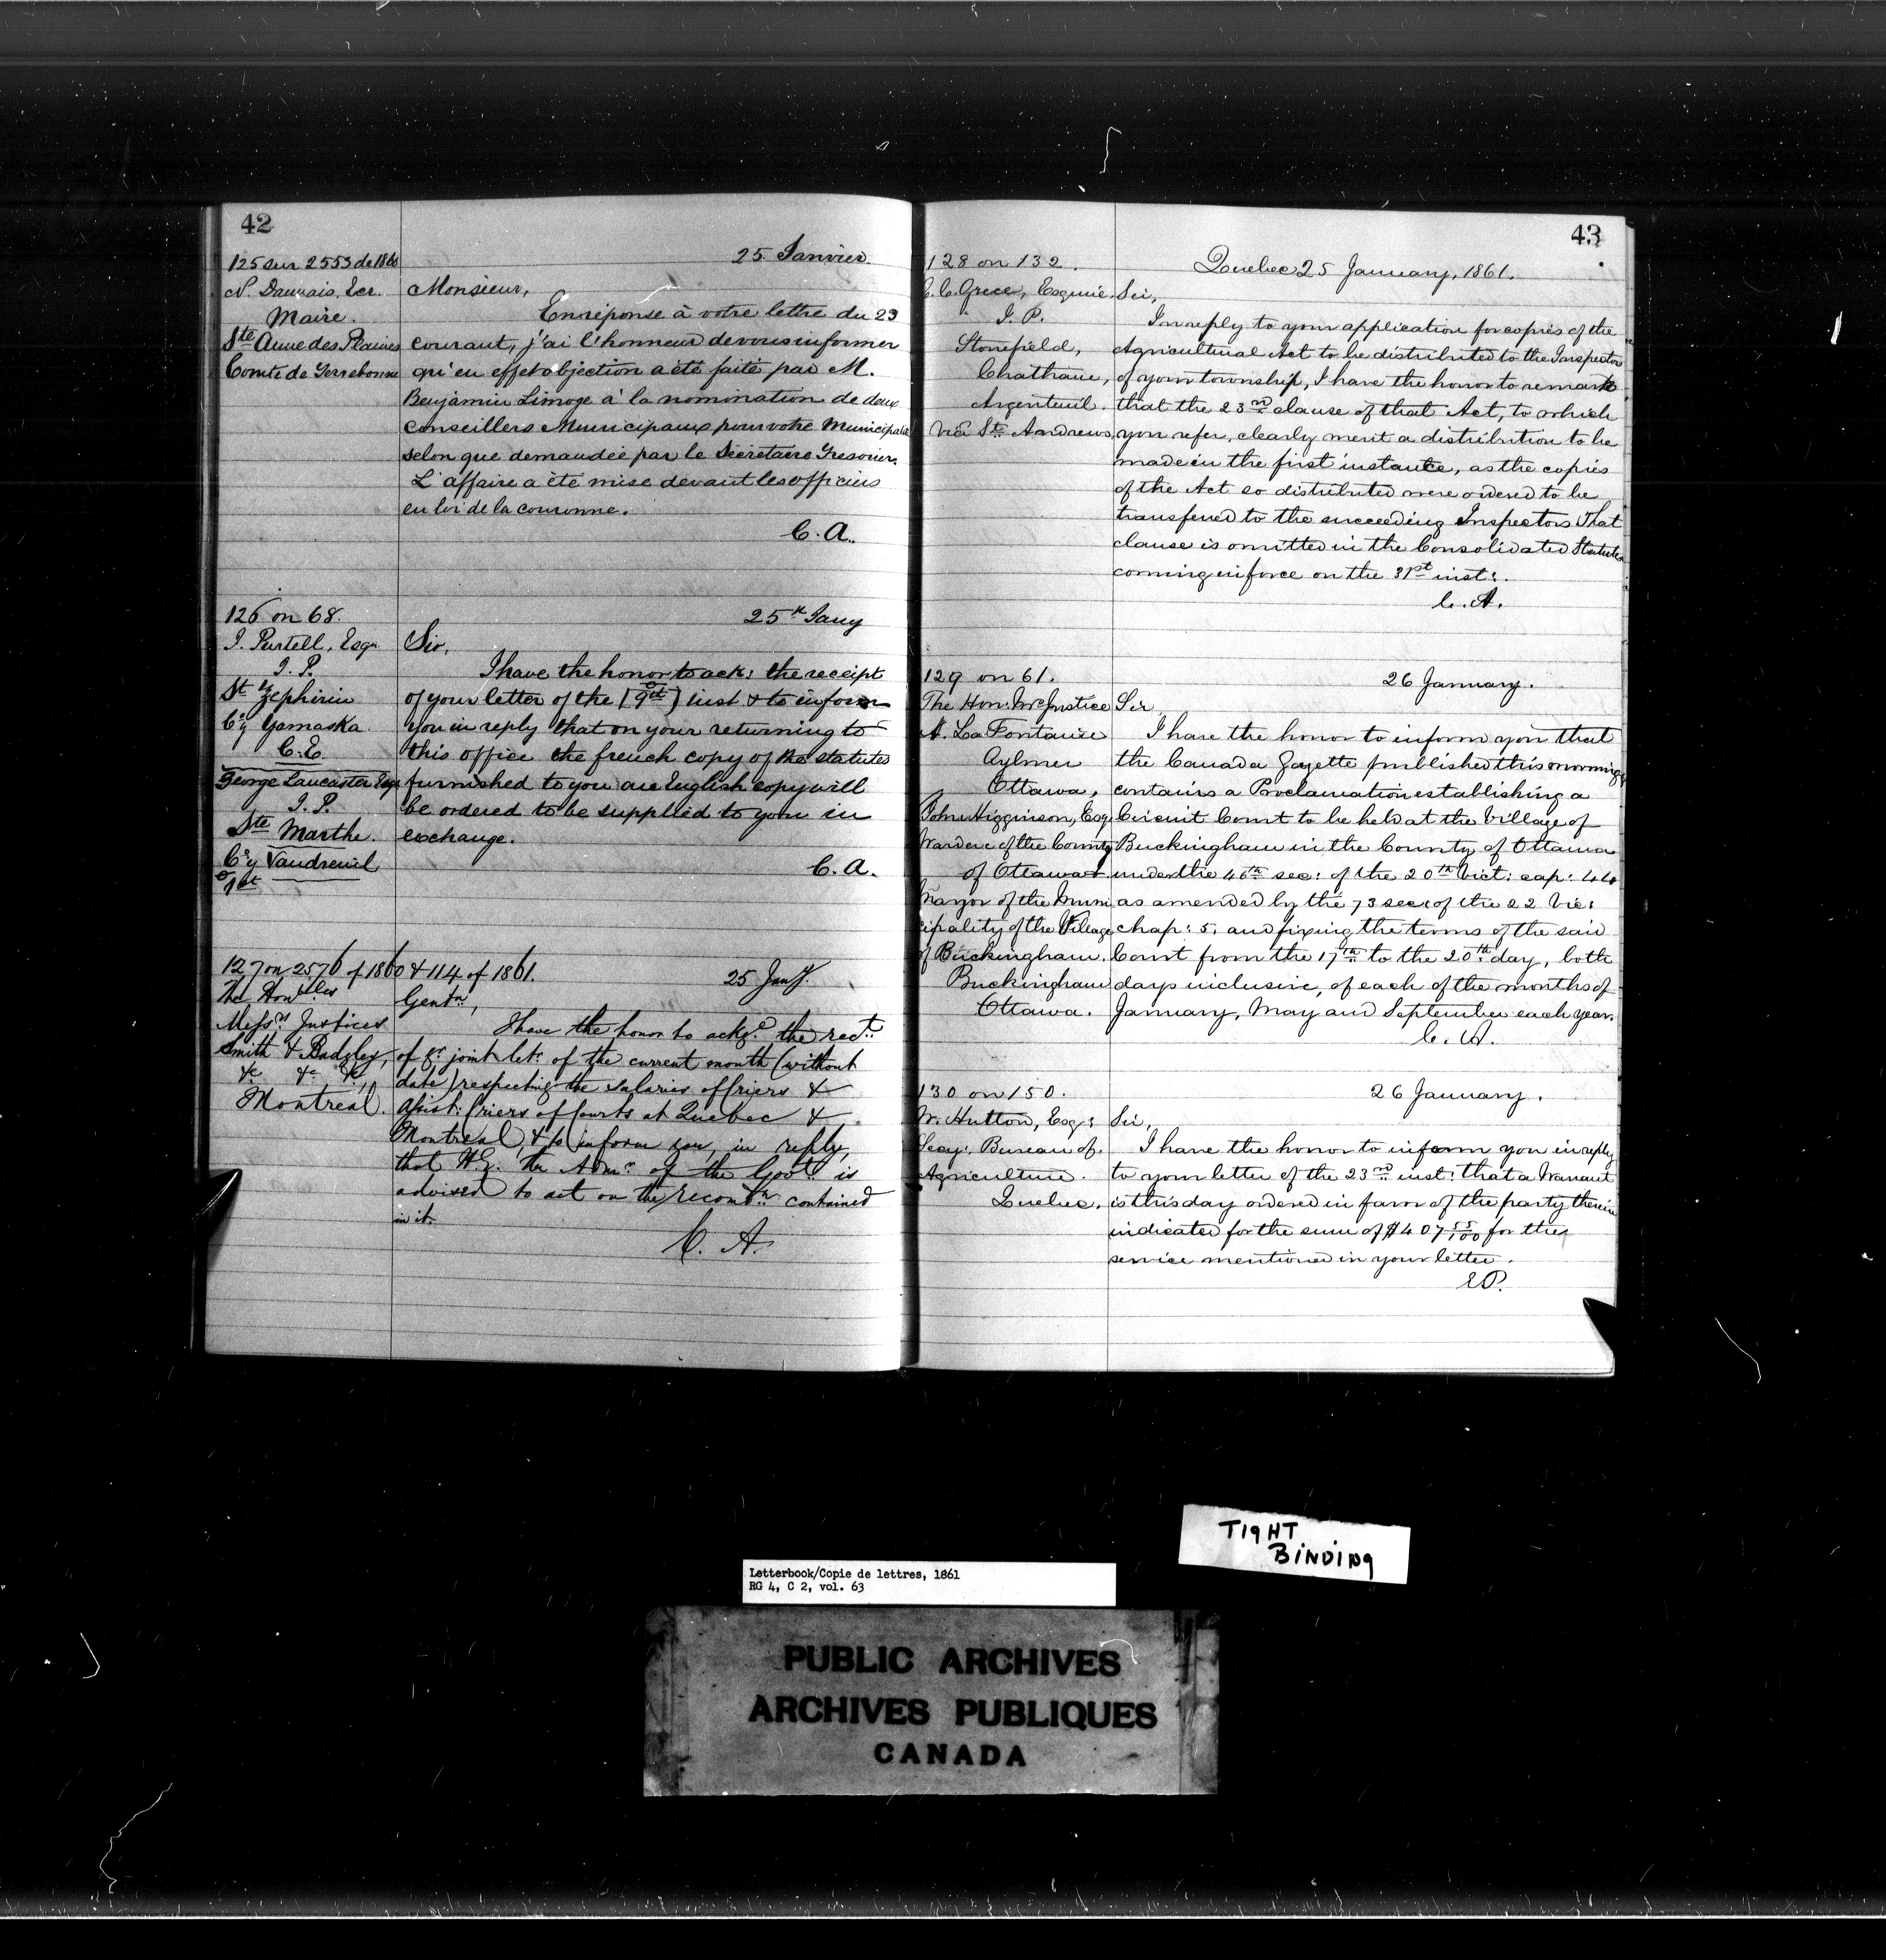 42
125 sur 2553 de 1860
25 Janvier.
N. Dauvais, Ecr.
Maire.
Ste Anne des Plaines
Comté de Terrebonne
Monsieur,
En réponse à votre lettre du 23
courant, j'ai l'honneur de vous informer
qu'en effet objection a été faite par M.
Benjamin Limoge à la nomination de deux
conseillers Municipaux pour votre Municipalité
selon que demandée par le Sécrétaire Trésorier.
L'affaire a été mise devant les officiers
en loi de la couronne.
C. A.
126 on 68.
25th Jany
J. Purtell, Esqr.
J. P.
St Zephirin
Co'y Yamaska.
C. E.
George Lancaster Esqr
J. P.
Ste Marthe.
Co'y Vaudreuil
1st
Sir,
I have the honor to ack: the receipt
of your letter of the (9th) inst & to inform
you in reply that on your returning to
this office the french copy of the statutes
furnished to you an English copy will
be ordered to be supplied to you in
exchange.
C. A.
127 on 2576 of 1860 & 114 of 1861.
25 Jany.
The Honbles
Messrs Justices
Smith & Badgley,
&c &c &c,
Montreal.
Gentn,
I have the honor to ackge the rect
of yr joint letr of the current month (without
date) respecting the salaries of Criers &
Assist: Criers of Courts at Quebec &
Montreal, & to inform you, in reply,
that H.E. the Admr of the Govt is
advised to act on the recomdn contained
in it.
C. A.
43
128 on 132.
Quebec 25 January, 1861.
C. C. Grece, Esquire,
J. P.
Stonefield,
Chatham,
Argenteuil.
Via St. Andrews
Sir,
In reply to your application for copies of the
Agricultural Act to be distributed to the Inspectors
of your township, I have the honor to remark
that the 23rd clause of that Act, to which
you refer, clearly ment a distribution to be
made in the first instance, as the copies
of the Act so distributed were ordered to be
transferred to the succeeding Inspectors That
clause is omitted in the Consolidated Statutes
coming in force on the 31st inst:.
C. A.
129 on 61.
26 January.
The Hon: Mr Justice
A. La Fontaine
Aylmer
Ottawa,
John Higginson, Esq
Warden of the County
of Ottawa &
Mayor of the Muni
cipality of the Village
of Buckingham.
Buckingham
Ottawa.
Sir
I have the honor to inform you that
the Canada Gazette published this morning
contains a Proclamation establishing a
Circuit Court to be held at the Village of
Buckingham in the County of Ottawa
under the 46th sec: of the 20th Vict: cap: 44
as amended by the 73 sec: of the 22 Vic:
chap: 5, and fixing the terms of the said
Court from the 17th to the 20th day, both
days inclusive, of each of the months of
January, May and September each year.
C. A.
130 on 150.
26 January.
W. Hutton, Esq:
Secy: Bureau of
Agriculture.
Quebec.
Sir,
I have the honor to inform you in reply
to your letter of the 23rd inst: that a Warrant
is this day ordered in favor of the party therein
indicated for the sum of $407 55/100 for the
service mentioned in your letter.
E.P.
TIGHT
BINDING
Letterbook/Copie de lettres, 1861
RG 4, C 2, vol. 63
PUBLIC ARCHIVES
ARCHIVES PUBLIQUES
CANADA